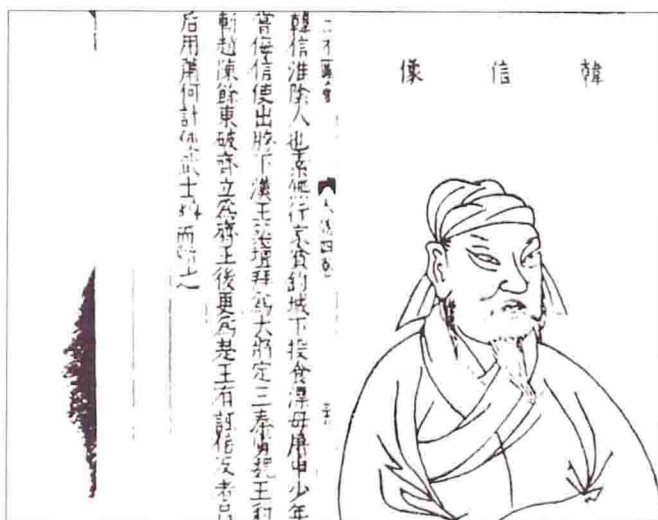 韓信像
三才圖會
人物四卷
韓信淮陰人也素無行家貧釣城下投食漂母屠中少年
嘗侮信使出胯下漢王築壇拜為大將定三秦虜魏王豹
斬越陳餘東破齊立為齊王後更為楚王有訶信反者呂
后用蕭何計使武士縛而斬之